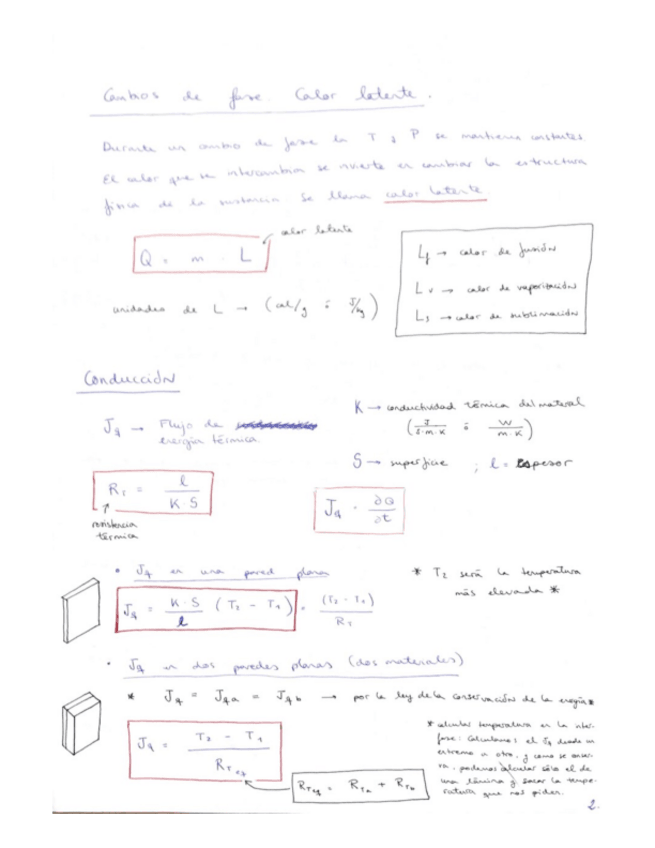 Cambios de fase. Calor latente.
Durante un cambio de fase la T y P se mantienen constantes.
El calor que se intercambia se invierte en cambiar la estructura
física de la sustancia. Se llama calor latente
calor latente
Q = m · L
Lf → calor de fusión
Lv → calor de vaporización
Ls → calor de sublimación
unidades de L → (cal/g ó J/kg)
Conducción
Jq → Flujo de
energía térmica
K → conductividad térmica del material
(J/s·m·K ó W/m·K)
S → superficie ; l = espesor
RT = l/K·S
resistencia
térmica
Jq = ∂Q/∂t
• Jq en una pared plana
* T2 será la temperatura
más elevada *
Jq = K·S/l (T2 - T1) = (T2 - T1)/RT
• Jq en dos paredes planas (dos materiales)
* Jq = Jqa = Jqb → por la ley de la conservación de la energía *
Jq = T2 - T1/RTeq
RTeq = RTa + RTb
* calcular temperatura en la inter-
fase: Calculamos el Jq desde un
extremo a otro, y como se conser-
va, podemos calcular sólo el de
una lámina y sacar la tempe-
ratura que nos piden.
2.